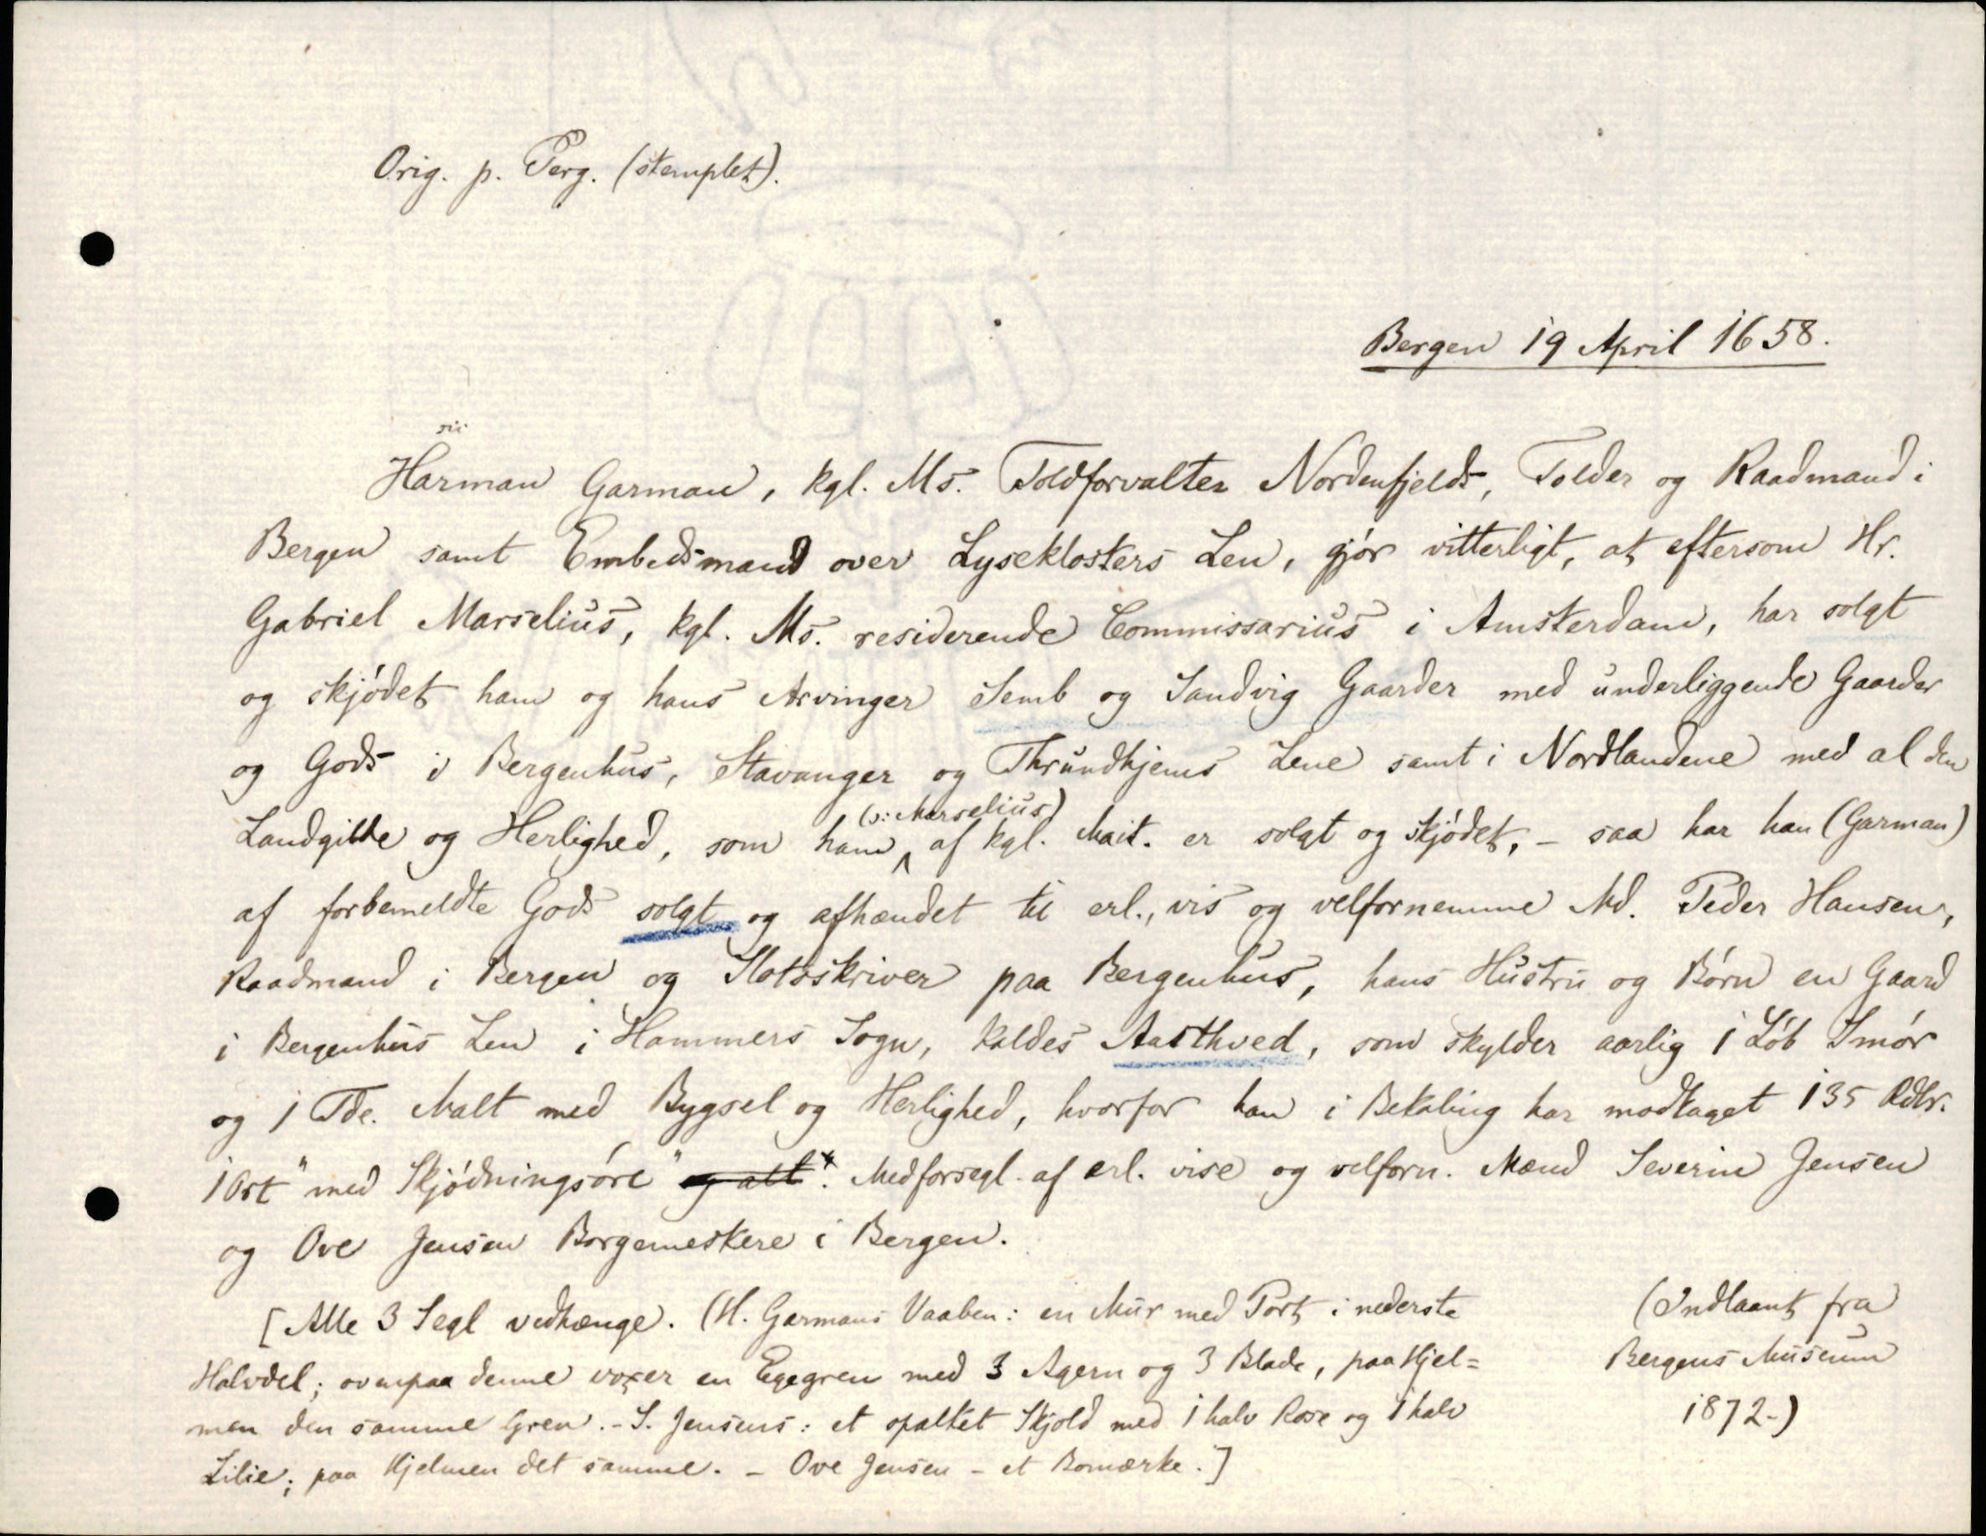 Orig. p. Perg. (stemplet).
Bergen 19 April 1658.
sic
Harman Garman, kgl. Ms. Toldforvalter Nordenfjelds, Tolder og Raadmand i
Bergen samt Embedsmand over Lyseklosters Len, gjör vitterligt, at eftersom Hr.
Gabriel Marselius, kgl. Ms. residerende Commissarius i Amsterdam, har solgt
og skjödet ham og hans Arvinger Semb og Sandvig Gaarder med underliggende Gaarder
og Gods i Bergenhus, Stavanger og Thrundhjems Lene samt i Nordlandene med al den
(ɔ: Marselius)
Landgilde og Herlighed, som ham ^ af kgl. Mait. er solgt og skjödet, – saa har han (Garman)
af forbemeldte Gods solgt og afhændet til erl., vis og velfornemme Md. Peder Hansen,
Raadmand i Bergen og Slotsskriver paa Bergenhus, hans Hustru og Börn en Gaard
i Bergenhus Len i Hammers Sogn, kaldes Aasthved, som skylder aarlig 1 Löb Smör
og 1 Tde. Malt med Bygsel og Herlighed, hvorfor han i Betaling har modtaget 135 Rdlr.
1 Ort "med Skjödningsöre" og alt. Medforsegl. af erl. vise og velforn. Mænd Severin Jensen
og Ove Jensen Borgemestere i Bergen.
[Alle 3 Segl vedhænge. (H. Garmans Vaaben: en Mur med Port i nederste
Halvdel; ovenpaa denne voxer en Egegren med 3 Agern og 3 Blade, paa Hjel=
men den samme Gren. – S. Jensens: et spaltet Skjold med 1 halv Rose og 1 halv
Lilie; paa Hjelmen det samme. – Ove Jensen – et Bomærke.]
(Indlaant fra
Bergens Museum
1872.)